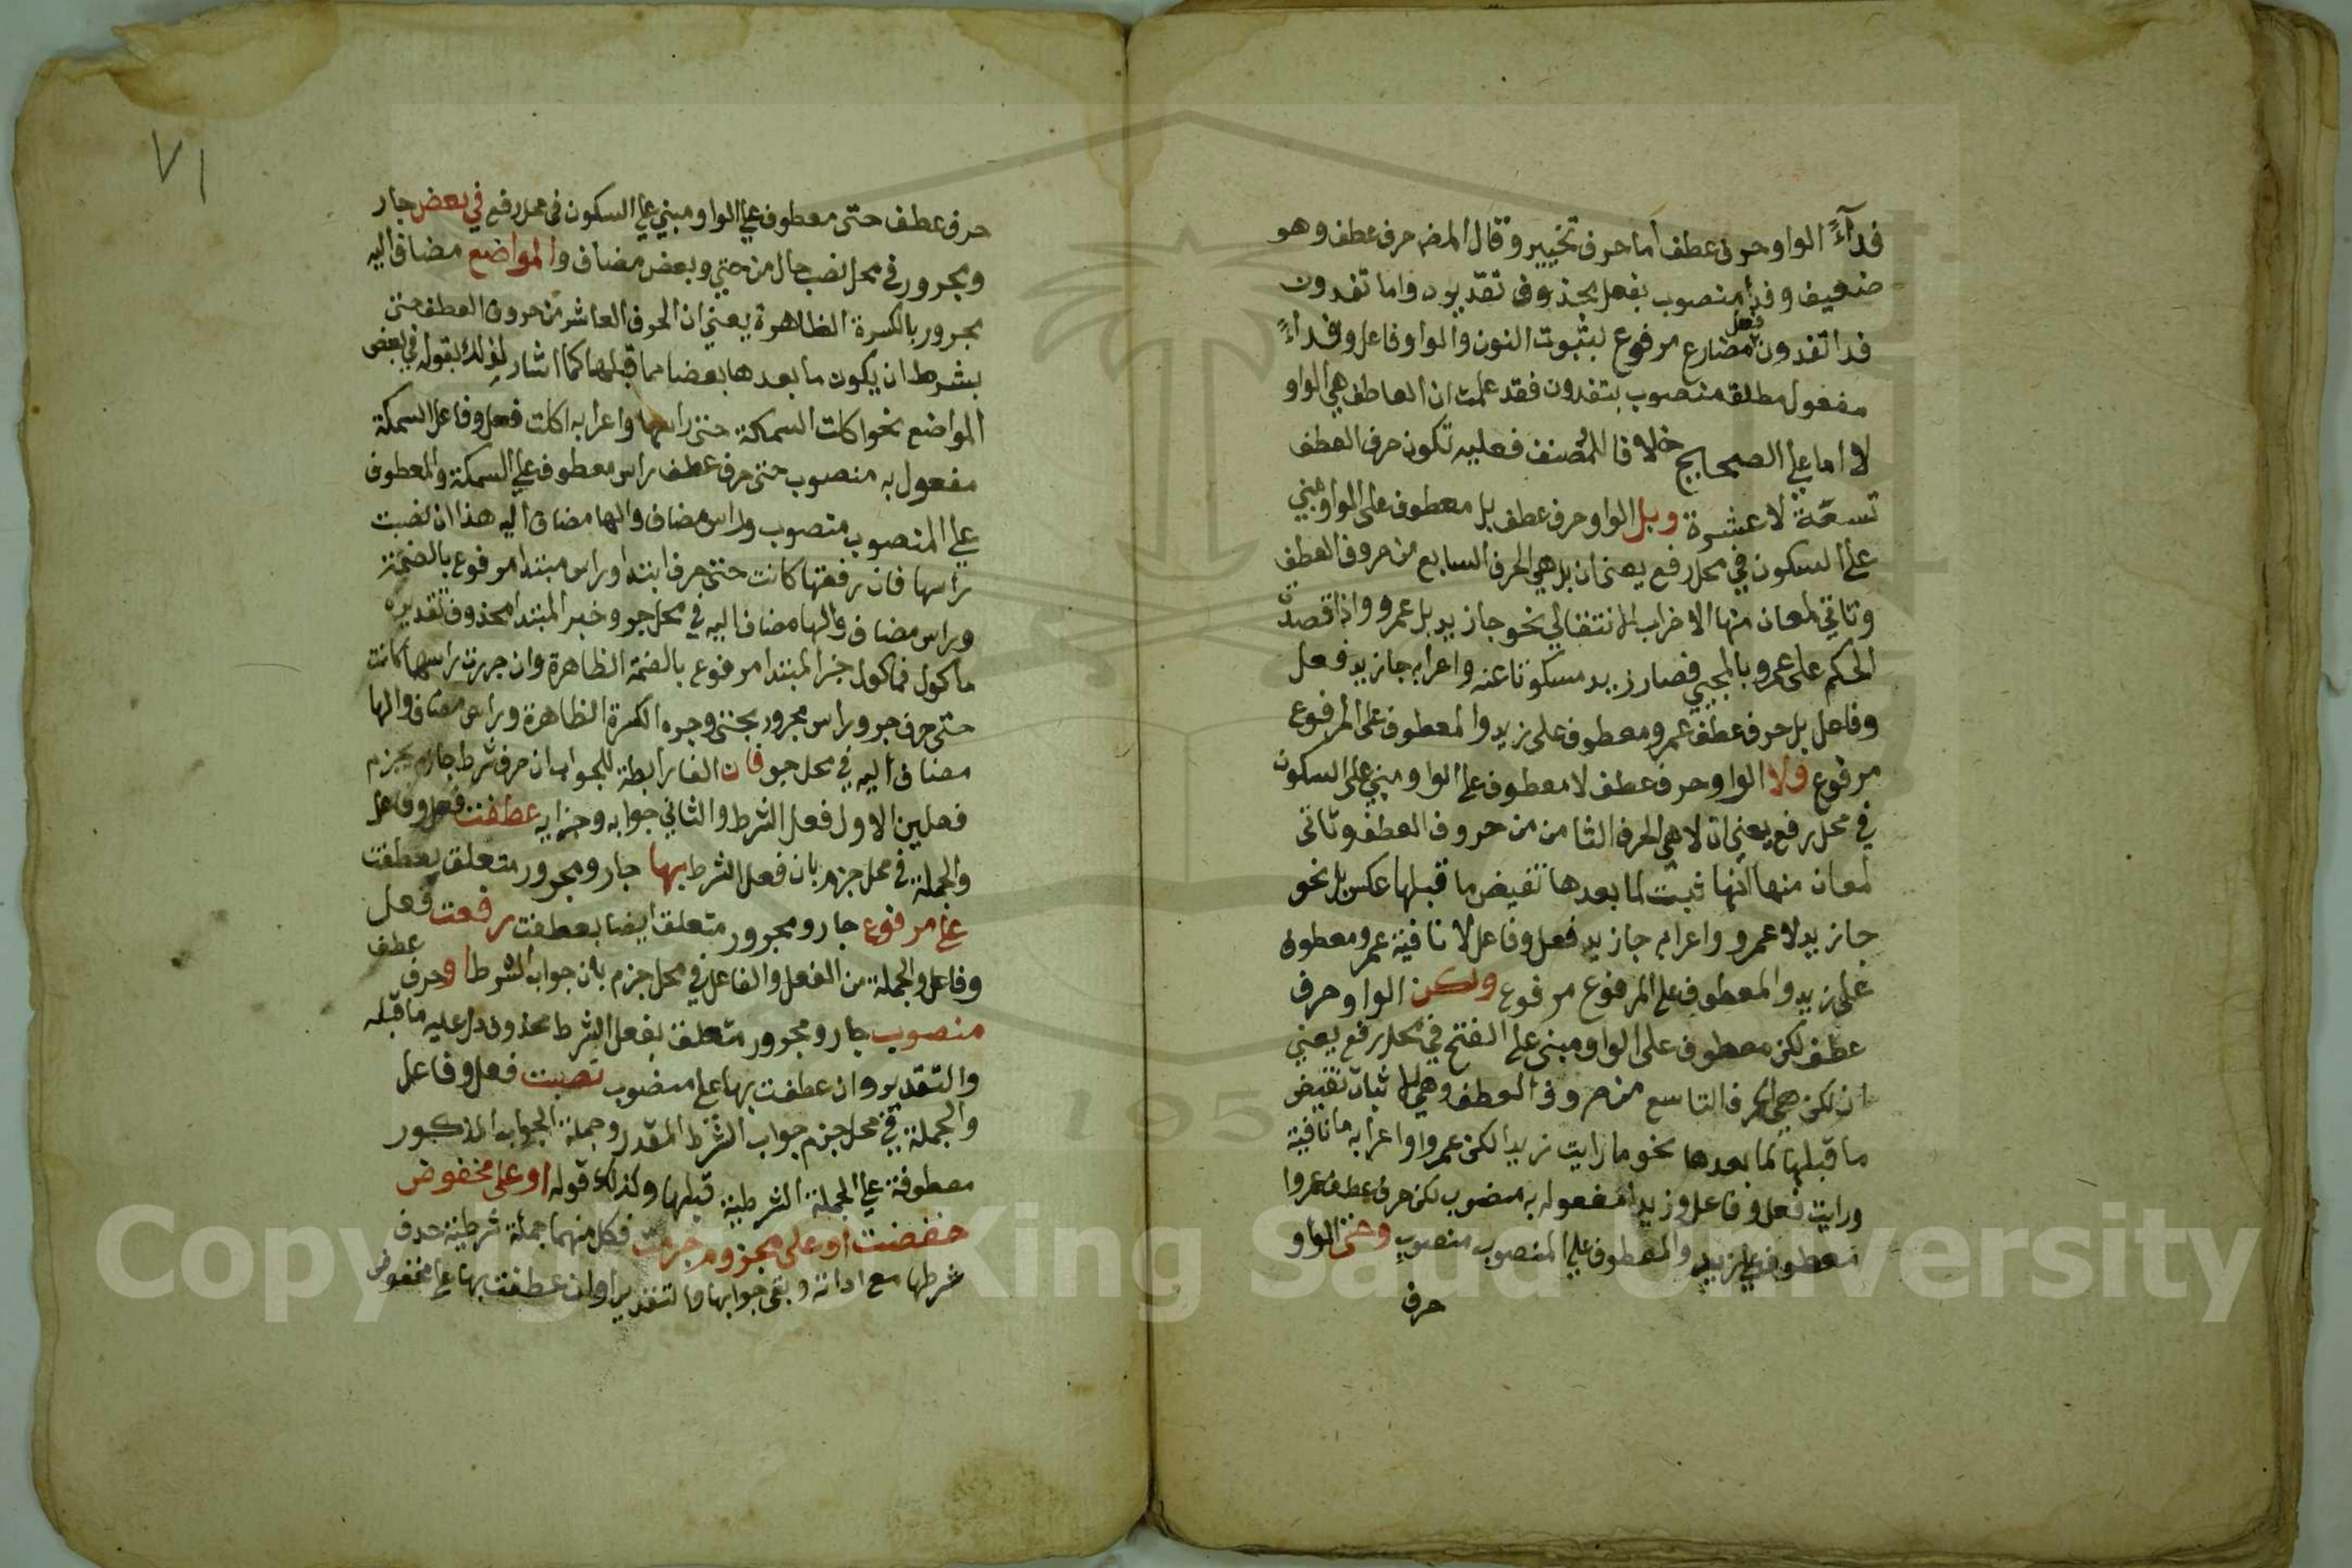 فدآءً الواو حرف عطف أما حرف تخيير وقال المض حرف عطف وهو
ضعيف وفدا منصوب بفعل محذوف تقديره واما تفدون
فدا تفدون فعل مضارع مرفوع لبثبوت النون والواو فاعل وفداءً
مفعول مطلق منصوب بتفدون فقد علمت ان العاطف هي الواو
لا اما علي الصحايح خلافا للمصنف فعليه تكون حرف العطف
تسعة لا عشرة وبل الواو حرف عطف بل معطوف على الواو مبني
علي السكون في محل رفع يعني ان بل هي الحرف السابع من حروف العطف
وتاتي لمعان منها الاضراب الانتقالي نحو جا زيد بل عمرو واذا قصدت
الحكم على عمرو بالمجيي فصار زيد مسكوتا عنه واعرابه جا زيد فعل
وفاعل بل حرف عطف عمرو معطوف على زيد والمعطوف على المرفوع
مرفوع ولا الواو حرف عطف لا معطوف علي الواو مبني على السكون
في محل رفع يعني ان لا هي الحرف الثامن من حروف العطف وتاتي
لمعان منها انها ثبت لما بعدها نقيض ما قبلها عكس بل نحو
جا زيد لا عمرو واعرابه جا زيد فعل وفاعل لا نافية عمرو معطوف
على زيد والمعطوف علي المرفوع مرفوع ولكن الواو حرف
عطف لكن معطوف على الواو مبني علي الفتح في محل رفع يعني
ان لكن هي الحرف التاسع من حروف العطف وهي لاثبات نقيض
ما قبلها لما بعدها نحو ما رايت زيدا لكن عمروا واعرابه ما نافية
ورايت فعل وفاعل وزيدا مفعول به منصوب لكن حرف عطف عمروا
معطوف علي زيد والمعطوف علي المنصوب منصوب وحتى الواو
حرف
٧١
حرف عطف حتى معطوف علي الواو مبني علي السكون في محل رفع في بعض جار
ومجرور في محل نصب حال من حتي وبعض مضاف والمواضع مضاف اليه
مجرور بالكسرة الظاهرة يعني ان الحرف العاشر من حروف العطف حتى
بشرط ان يكون ما بعدها بعضا مما قبلها كما اشار لذلك بقوله في بعض
المواضع نحو اكلت السمكة حتى راسها واعرابه اكلت فعل وفاعل السمكة
مفعول به منصوب حتى حرف عطف راس معطوف علي السمكة والمعطوف
علي المنصوب منصوب وراس مضاف والها مضاف اليه هذا ان نصبت
راسها فان رفعتها كانت حتى حرف ابتدا وراس مبتدا مرفوع بالضمة
وراس مضاف والها مضاف اليه في محل جر وخبر المبتدا محذوف تقديره
ماكول فماكول خبر المبتدا مرفوع بالضمة الظاهرة وان جررت راسها كانت
حتى حرف جر وراس مجرور بحتى وجره الكسرة الظاهرة وراس مضاف والها
مضاف اليه في محل جر فان الفا رابطة للجواب ان حرف شرط جازم يجزم
فعلين الاول فعل الشرط والثاني جوابه وجزايه عطفت فعل وفاعل
والجملة في محل جزم بان فعل الشرط بها جار ومجرور متعلق بعطفت
علي مرفوع جار ومجرور متعلق ايضا بعطفت رفعت فعل
وفاعل والجملة من الفعل والفاعل في محل جزم بان جواب الشرط او حرف عطف
منصوب جار ومجرور متعلق بفعل الشرط محذوف دل عليه ما قبله
والتقدير وان عطفت بها علي منصوب نصبت فعل وفاعل
والجملة في محل جزم جواب الشرط المقدر وجملة الجواب المذكور
معطوفة علي الجملة الشرطية قبلها وكذلك قوله او على مخفوض
خفضت او على مجزوم جزمت فكل منهما جملة شرطية حذف
شرطها مع اداته وبقي جوابها والتقدير اوان عطفت بها علي مخفوض
Copyright © King Saud University
195